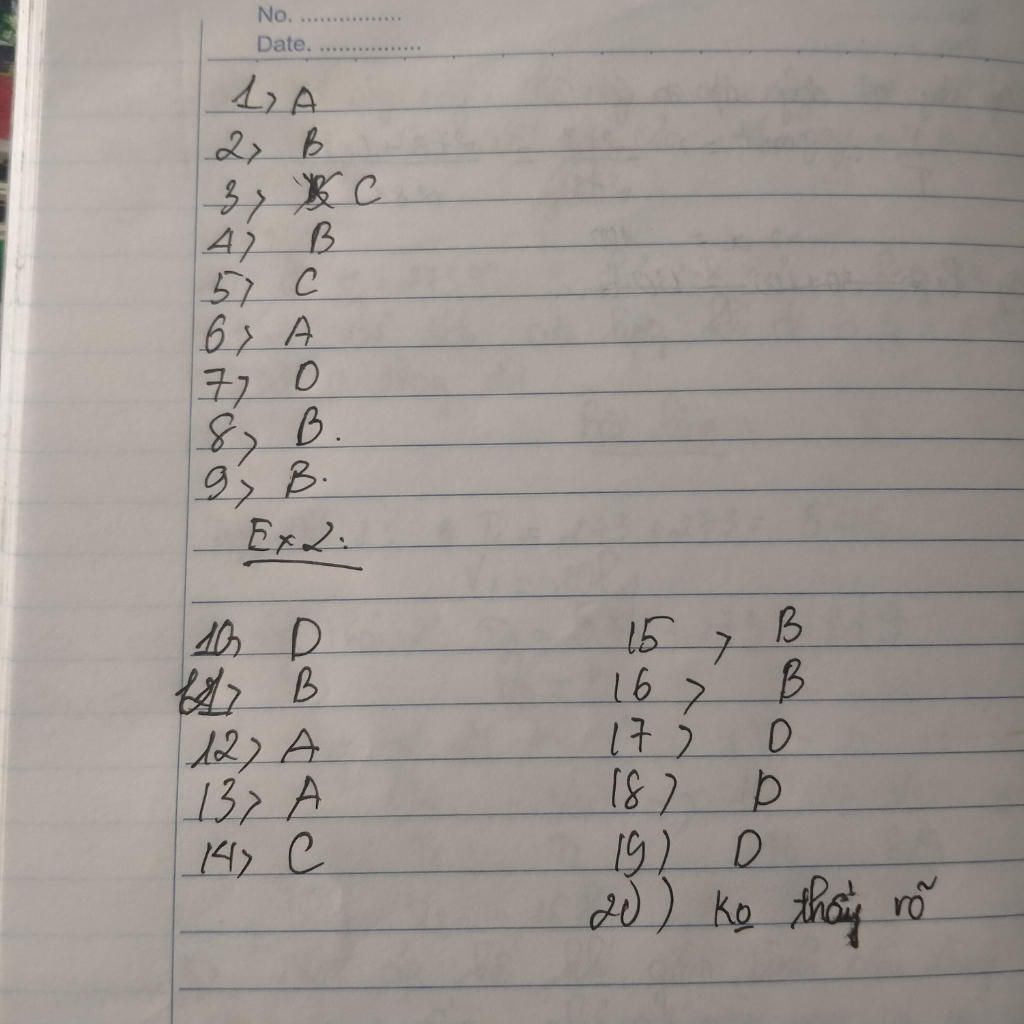 No. ................
Date. ................
1> A
2> B
3> C
4> B
5> C
6> A
7> D
8> B.
9> B.
Ex2:
10> D
11> B
12> A
13> A
14> C
15> B
16> B
17> D
18> D
19) D
20) ko thấy rõ